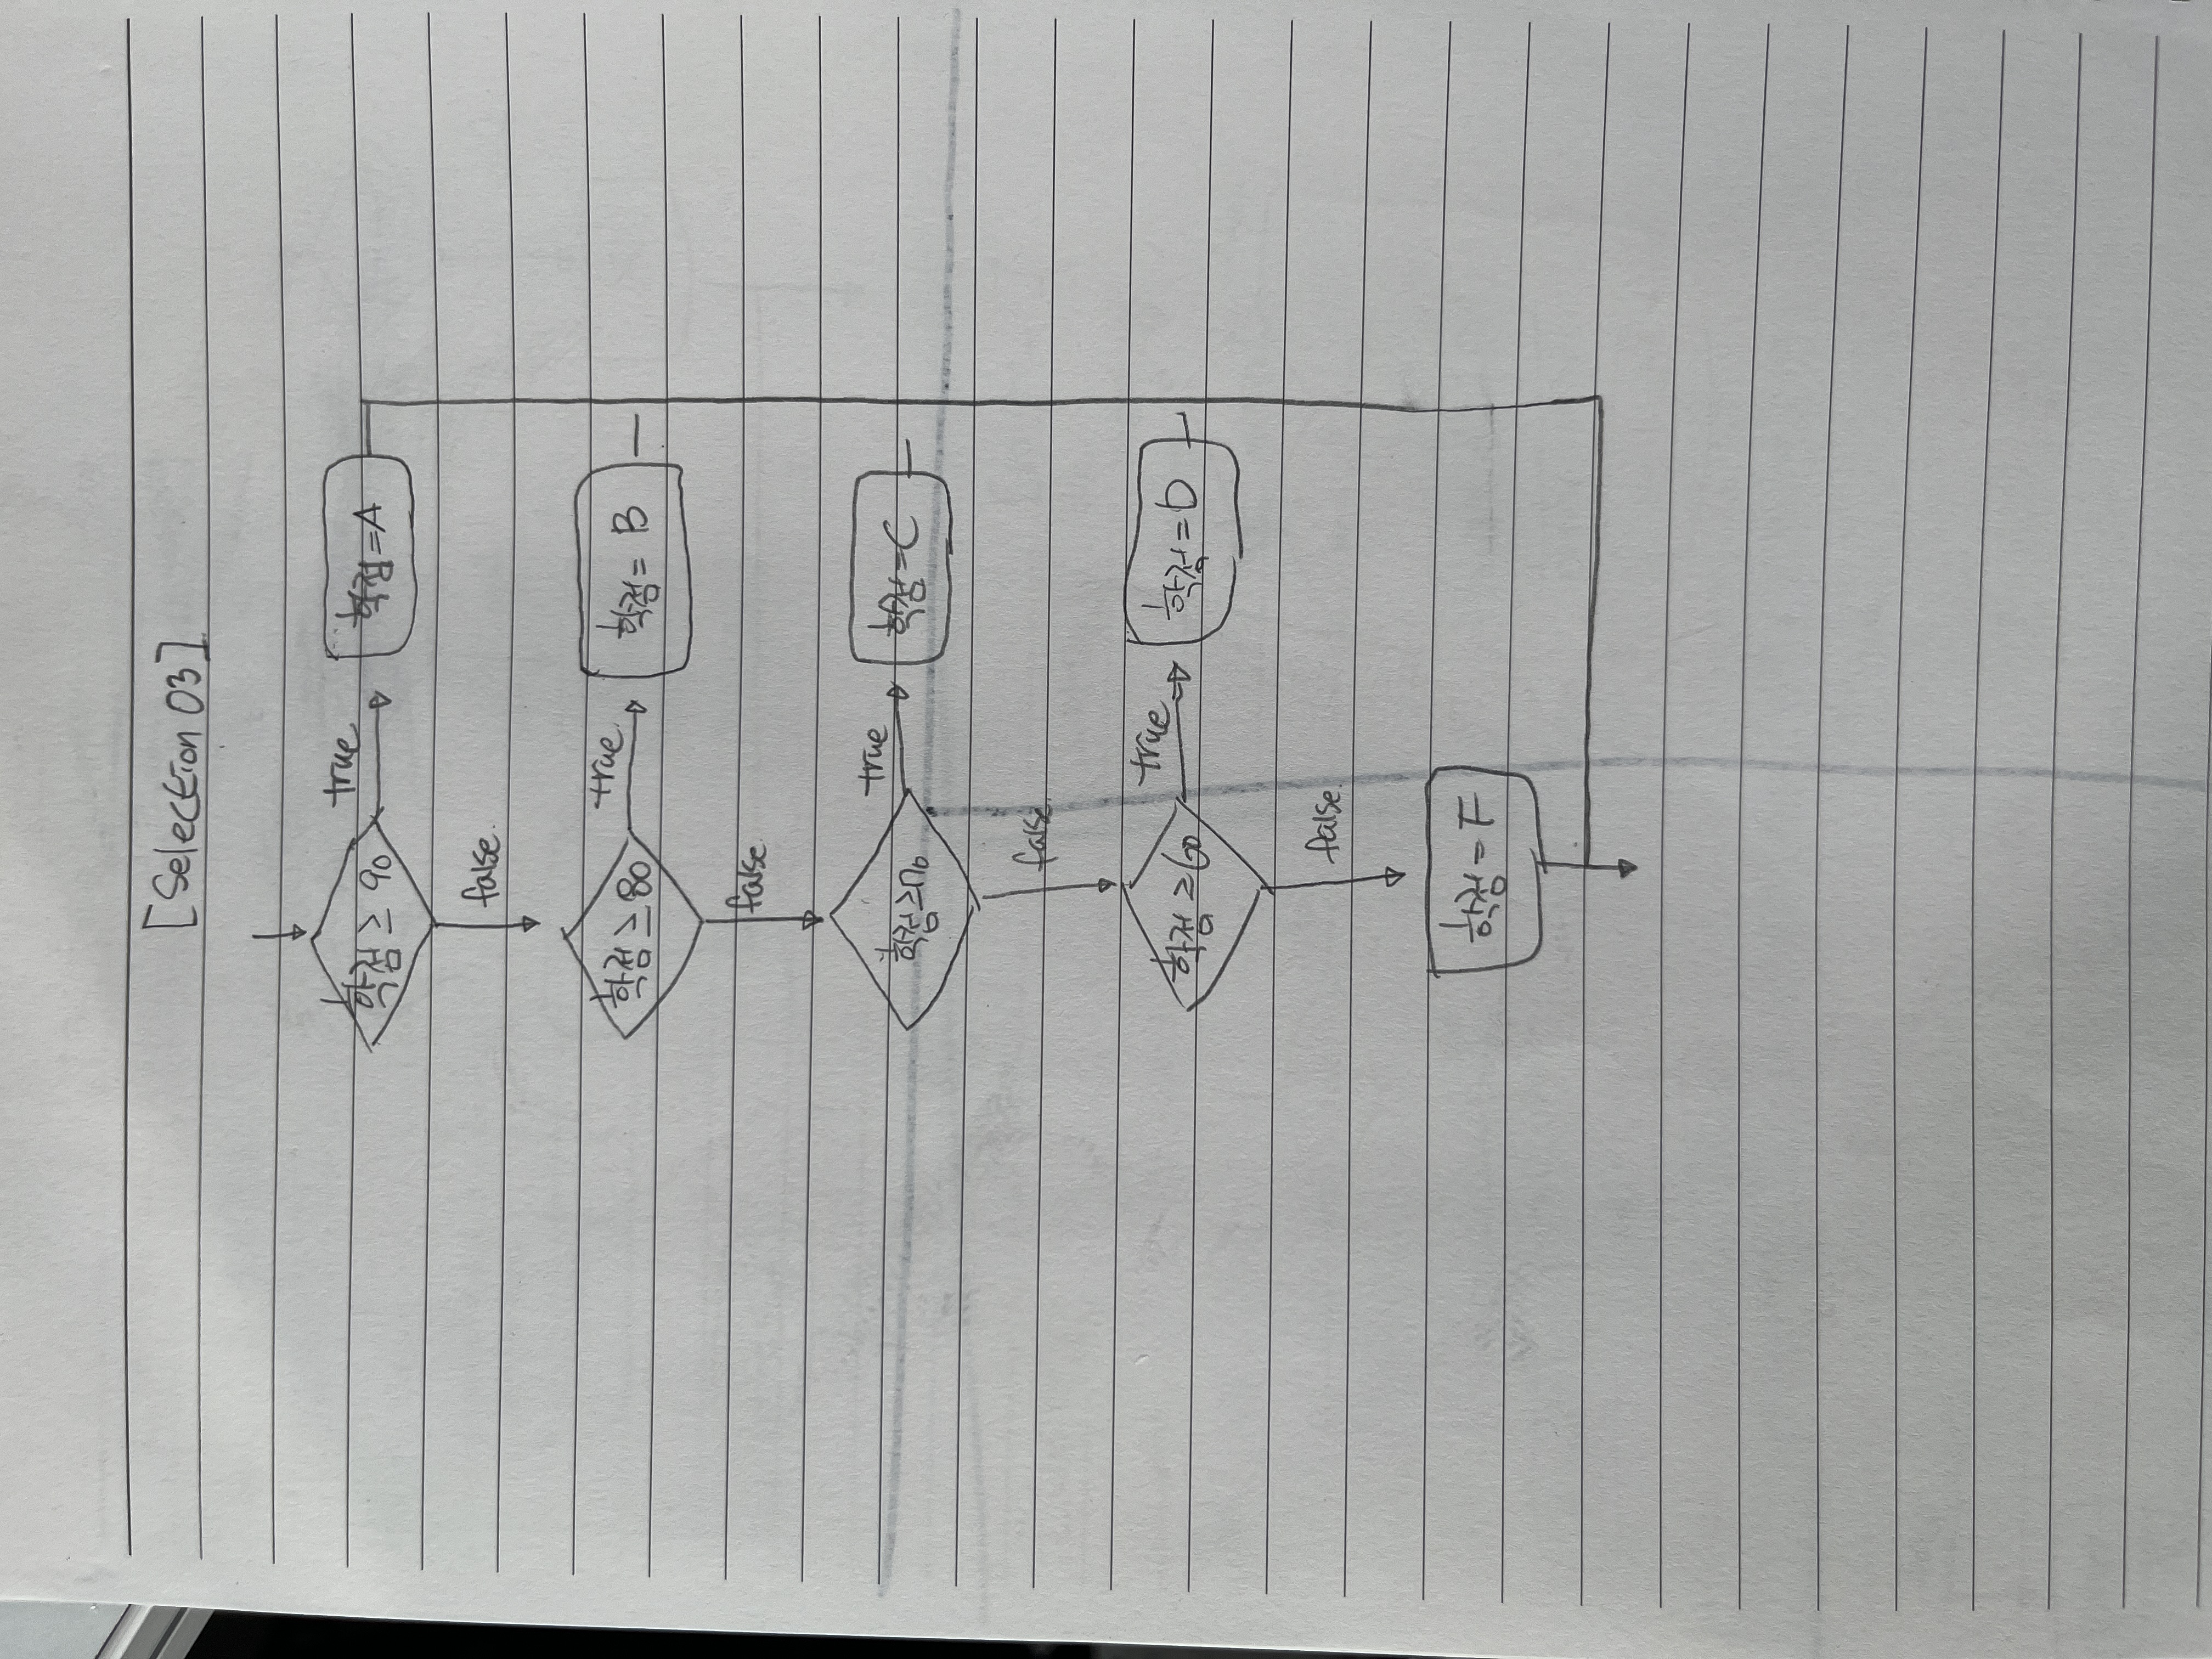 [Selection 03]
학점 ≥ 90
true
학점=A
false.
학점 ≥ 80
true.
학점= B
false.
학점 ≥70
true
학점=C
false.
학점 ≥60
true
학점=D
false.
학점=F